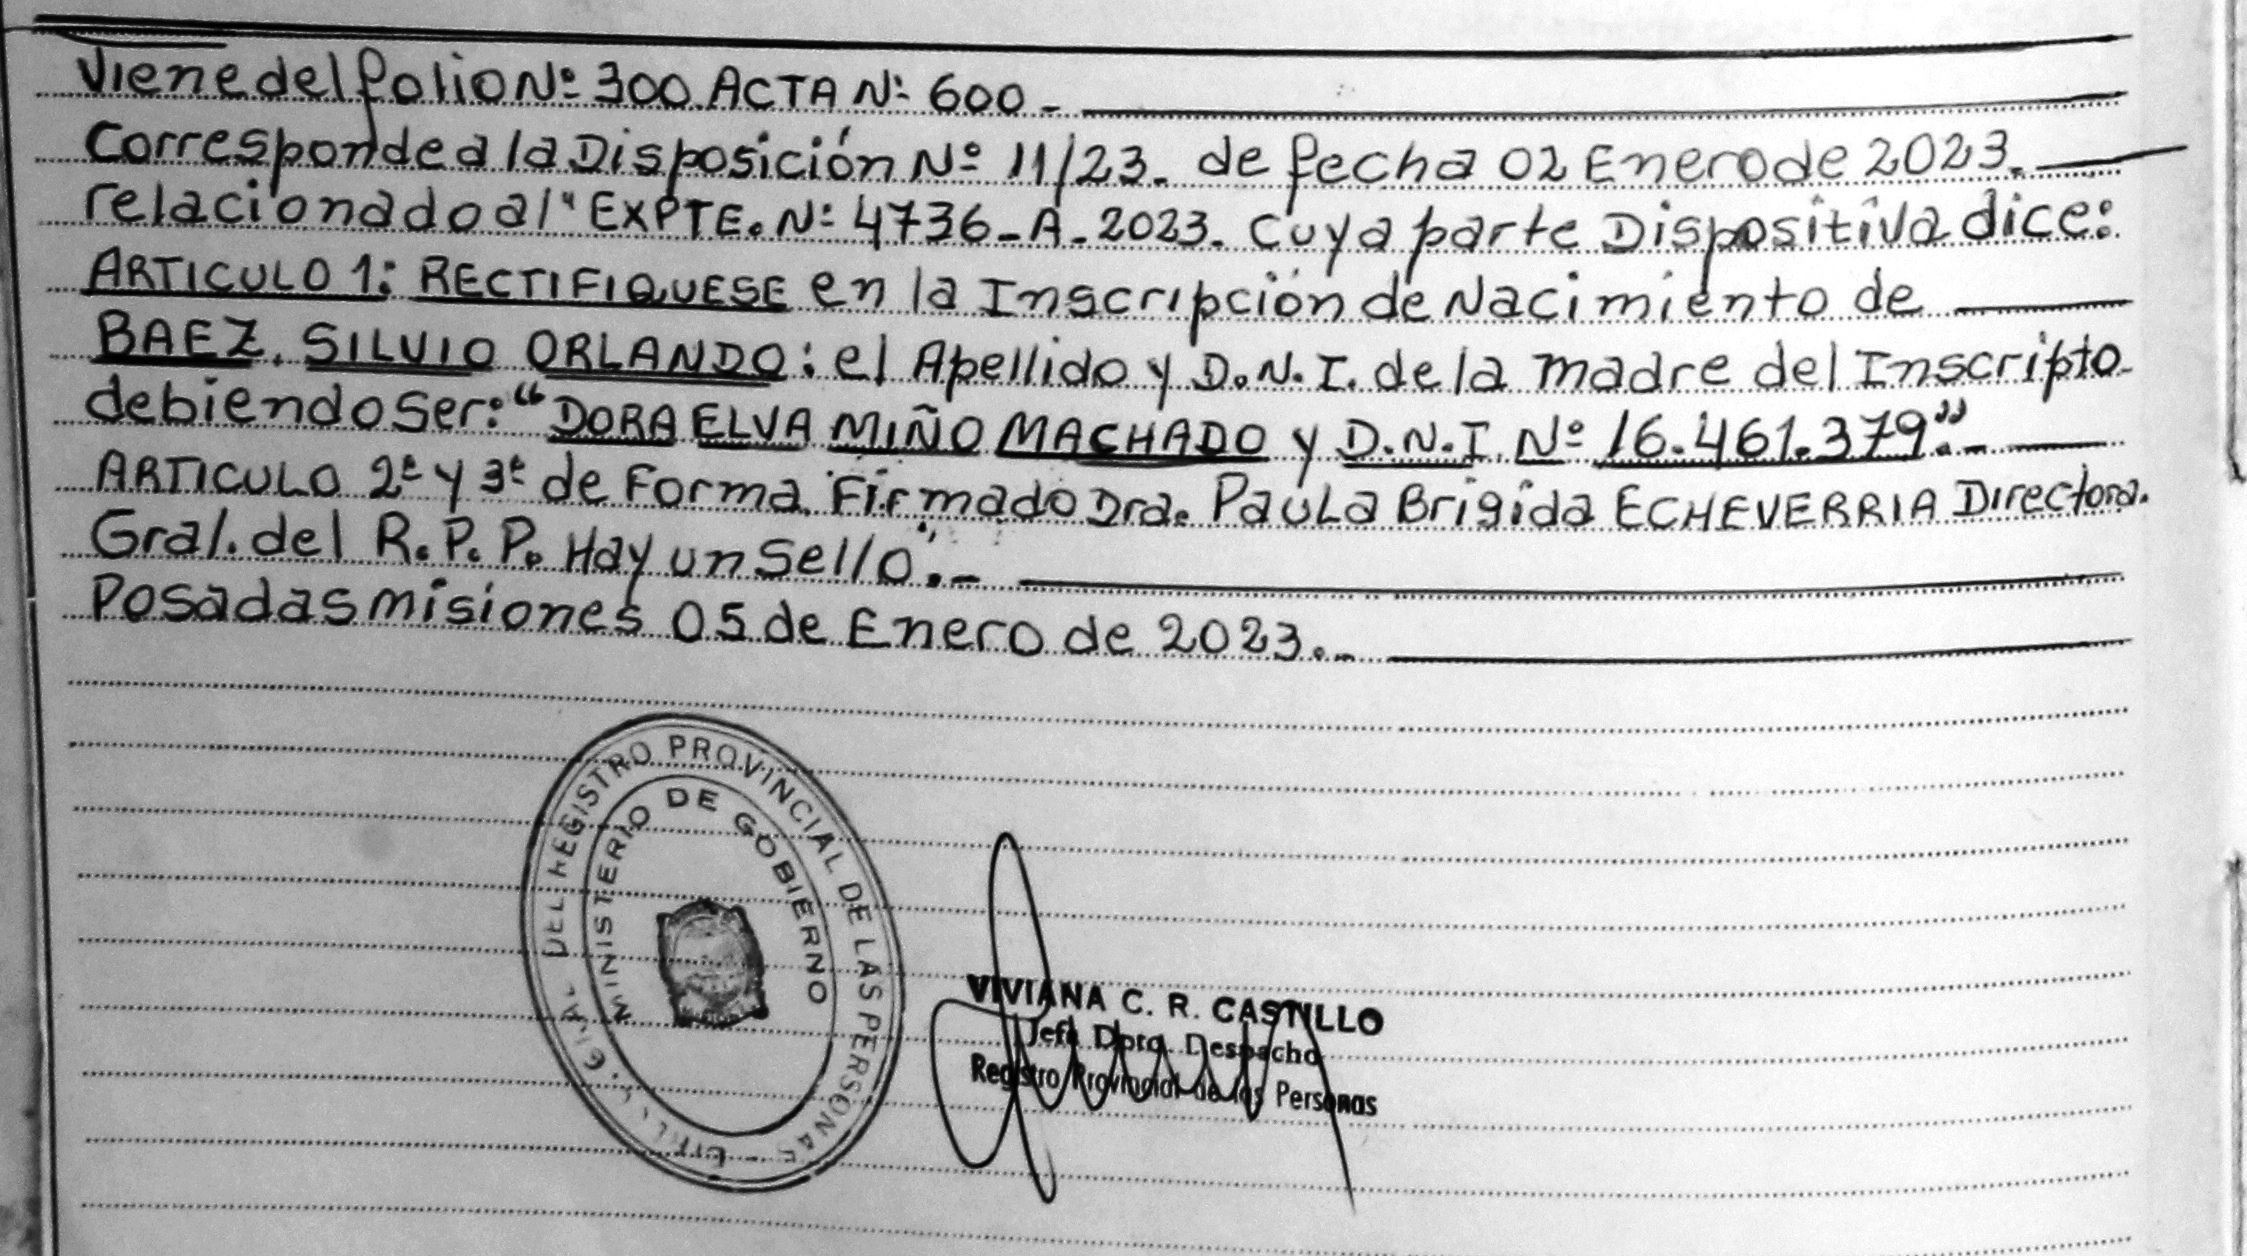 Viene del folio Nº 300. ACTA Nº 600 -
Corresponde a la Disposición Nº 11/23. de fecha 02 Enero de 2023.
relacionado al "EXPTE. Nº 4736-A-2023. Cuya parte Dispositiva dice:
ARTICULO 1: RECTIFIQUESE en la Inscripción de Nacimiento de
BAEZ, SILVIO ORLANDO: el Apellido y D.N.I. de la madre del Inscripto
debiendo ser: "DORA ELVA MIÑO MACHADO y D.N.I. Nº 16.461.379".-
ARTICULO 2º y 3º de Forma. Firmado Dra. Paula Brigida ECHEVERRIA Directora.
Gral. del R.P.P. Hay un Sello".-
Posadas misiones 05 de Enero de 2023.-
DEL REGISTRO PROVINCIAL DE LAS PERSONAS
MINISTERIO DE GOBIERNO
VIVIANA C. R. CASTILLO
Jefe Dpto. Despacho
Registro Provincial de las Personas